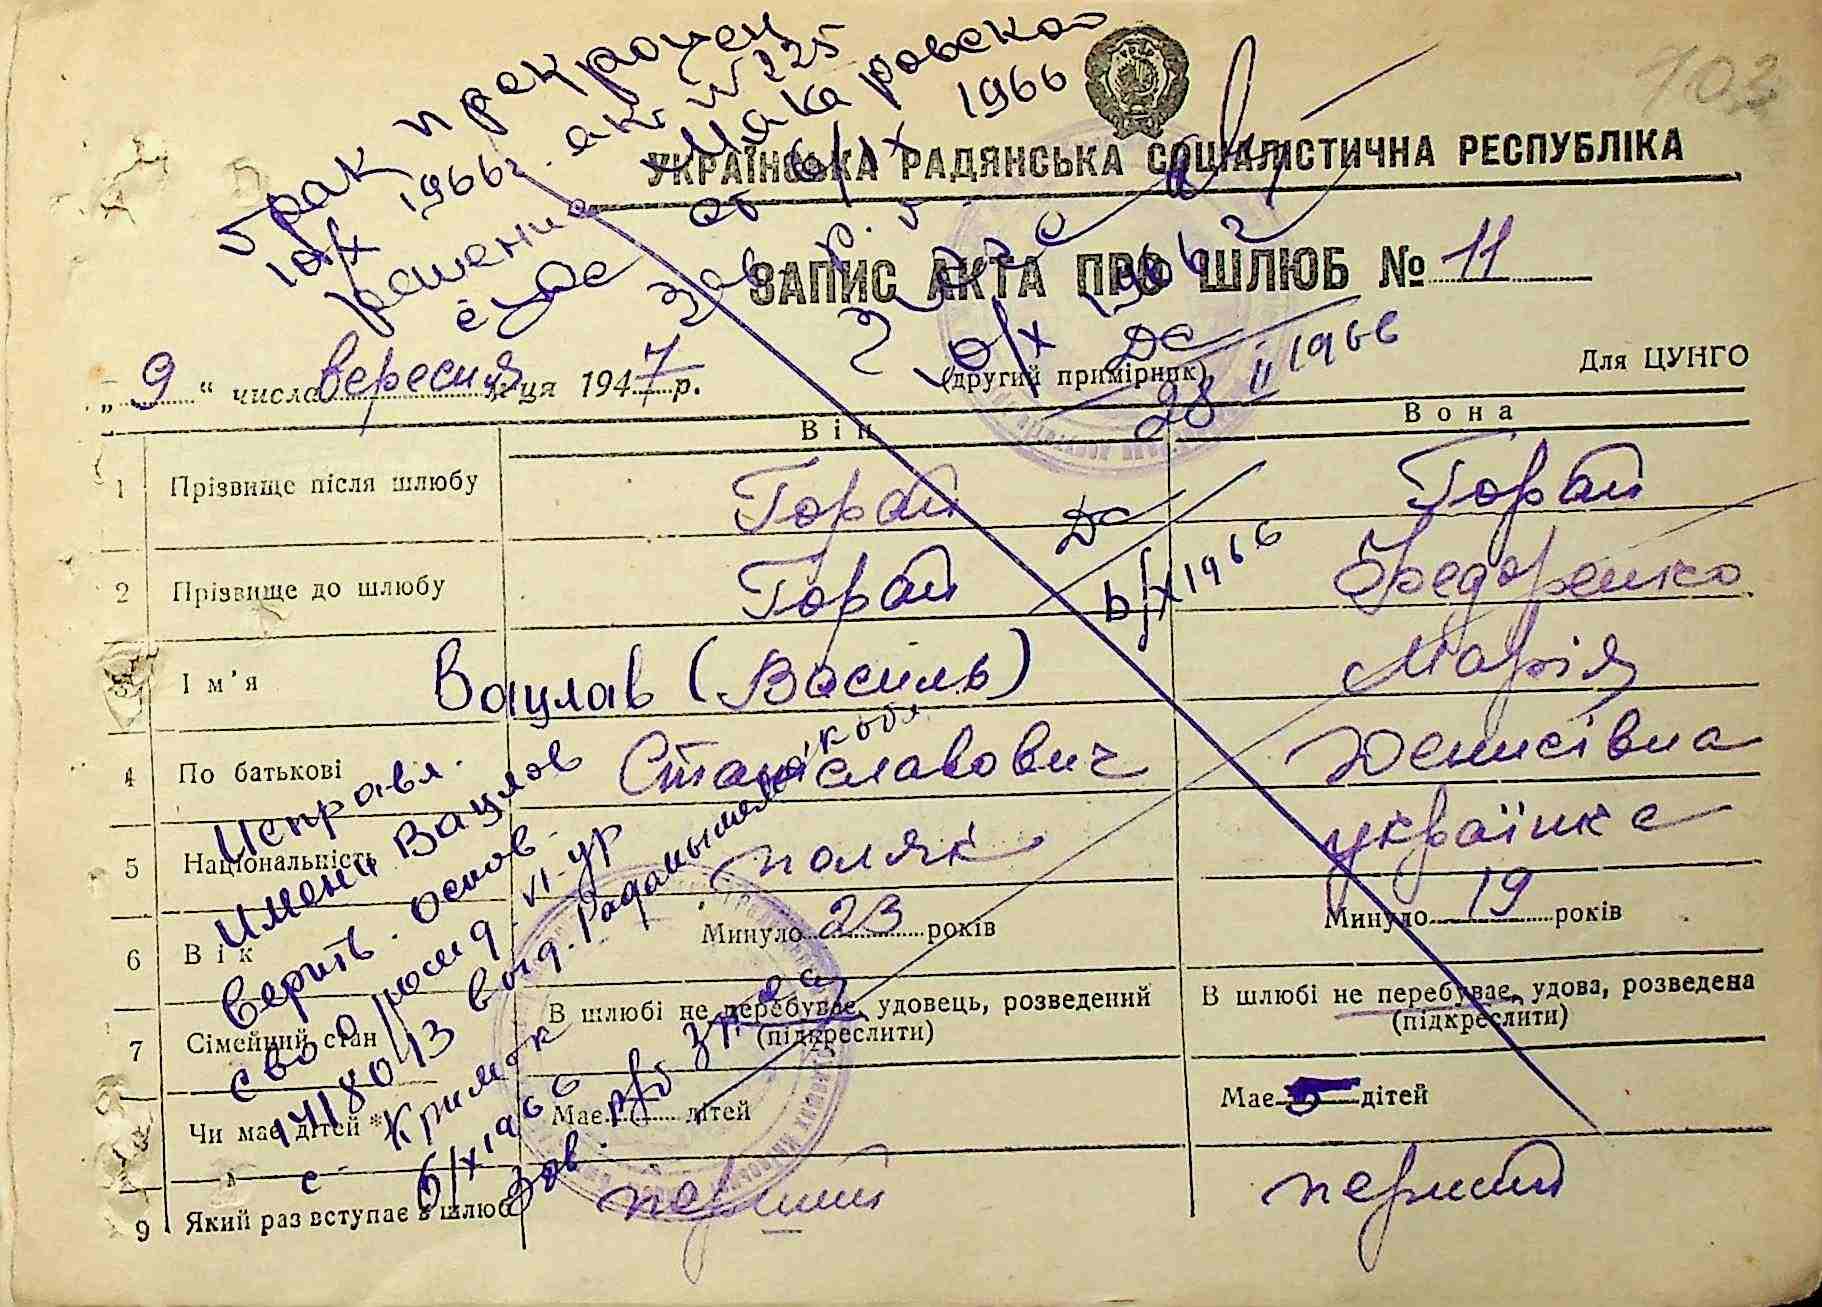 103
брак прекращен
10/X 1966г. акт №225
решение Макаровской
суда от 6/IX 1966
Зав. р. б.
ЗАГС
10/X 1966 г
УКРАЇНСЬКА РАДЯНСЬКА СОЦІАЛІСТИЧНА РЕСПУБЛІКА
ЗАПИС АКТА ПРО ШЛЮБ № 11
„9“ числа вересня м-ця 1947 р.
(другий примірник)
Для ЦУНГО
28 II 1966
Він Вона
1 Прізвище після шлюбу Горай Горай
2 Прізвище до шлюбу Горай Федоренко
6/X 1966
3 Ім'я Вацлав (Василь) Марія
4 По батькові Станіславович Денисівна
5 Національність поляк українка
6 Вік Минуло 23 років Минуло 19 років
7 Сімейний стан В шлюбі не перебуває, удовець, розведений (підкреслити) В шлюбі не перебуває, удова, розведена (підкреслити)
8 Чи має дітей * Має дітей Має дітей
9 Який раз вступає в шлюб перший перший
Исправл.
имени Вацлав
верить. основ.
св о рожд. VI-УР
№18013 выд. Радомышльск обл.
с. Кримок
6/X 1966
Зав. р/б ЗАГСа